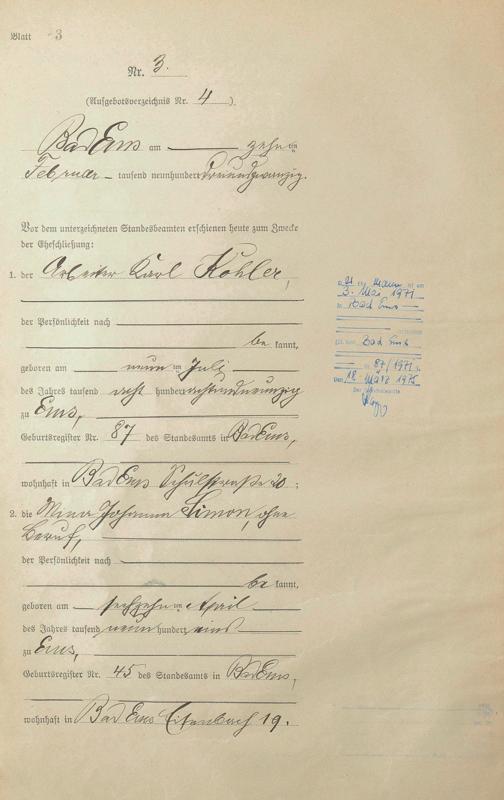 Blatt 3
Nr. 3.
(Aufgebotsverzeichnis Nr. 4)
Bad Ems am zehnten
Februar tausend neunhundert dreiundzwanzig.
Vor dem unterzeichneten Standesbeamten erschienen heute zum Zwecke
der Eheschließung:
1. der Arbeiter Karl Köhler,
der Persönlichkeit nach
be kannt,
geboren am neunten Juli
des Jahres tausend acht hundert achtundneunzig
zu Ems,
Geburtsregister Nr. 87 des Standesamts in Bad Ems,
wohnhaft in Bad Ems Schulstraße 20;
2. die Mina Johanna Simon, ohne
Beruf,
der Persönlichkeit nach
be kannt,
geboren am sechzehnten April
des Jahres tausend neun hundert eins
zu Ems,
Geburtsregister Nr. 45 des Standesamts in Bad Ems,
wohnhaft in Bad Ems Eisenbach 19.
Mann ist am
3. Mai 1971
in Bad Ems
Bad Ems
87/1971
den 18. März 1975
Der Standesbeamte